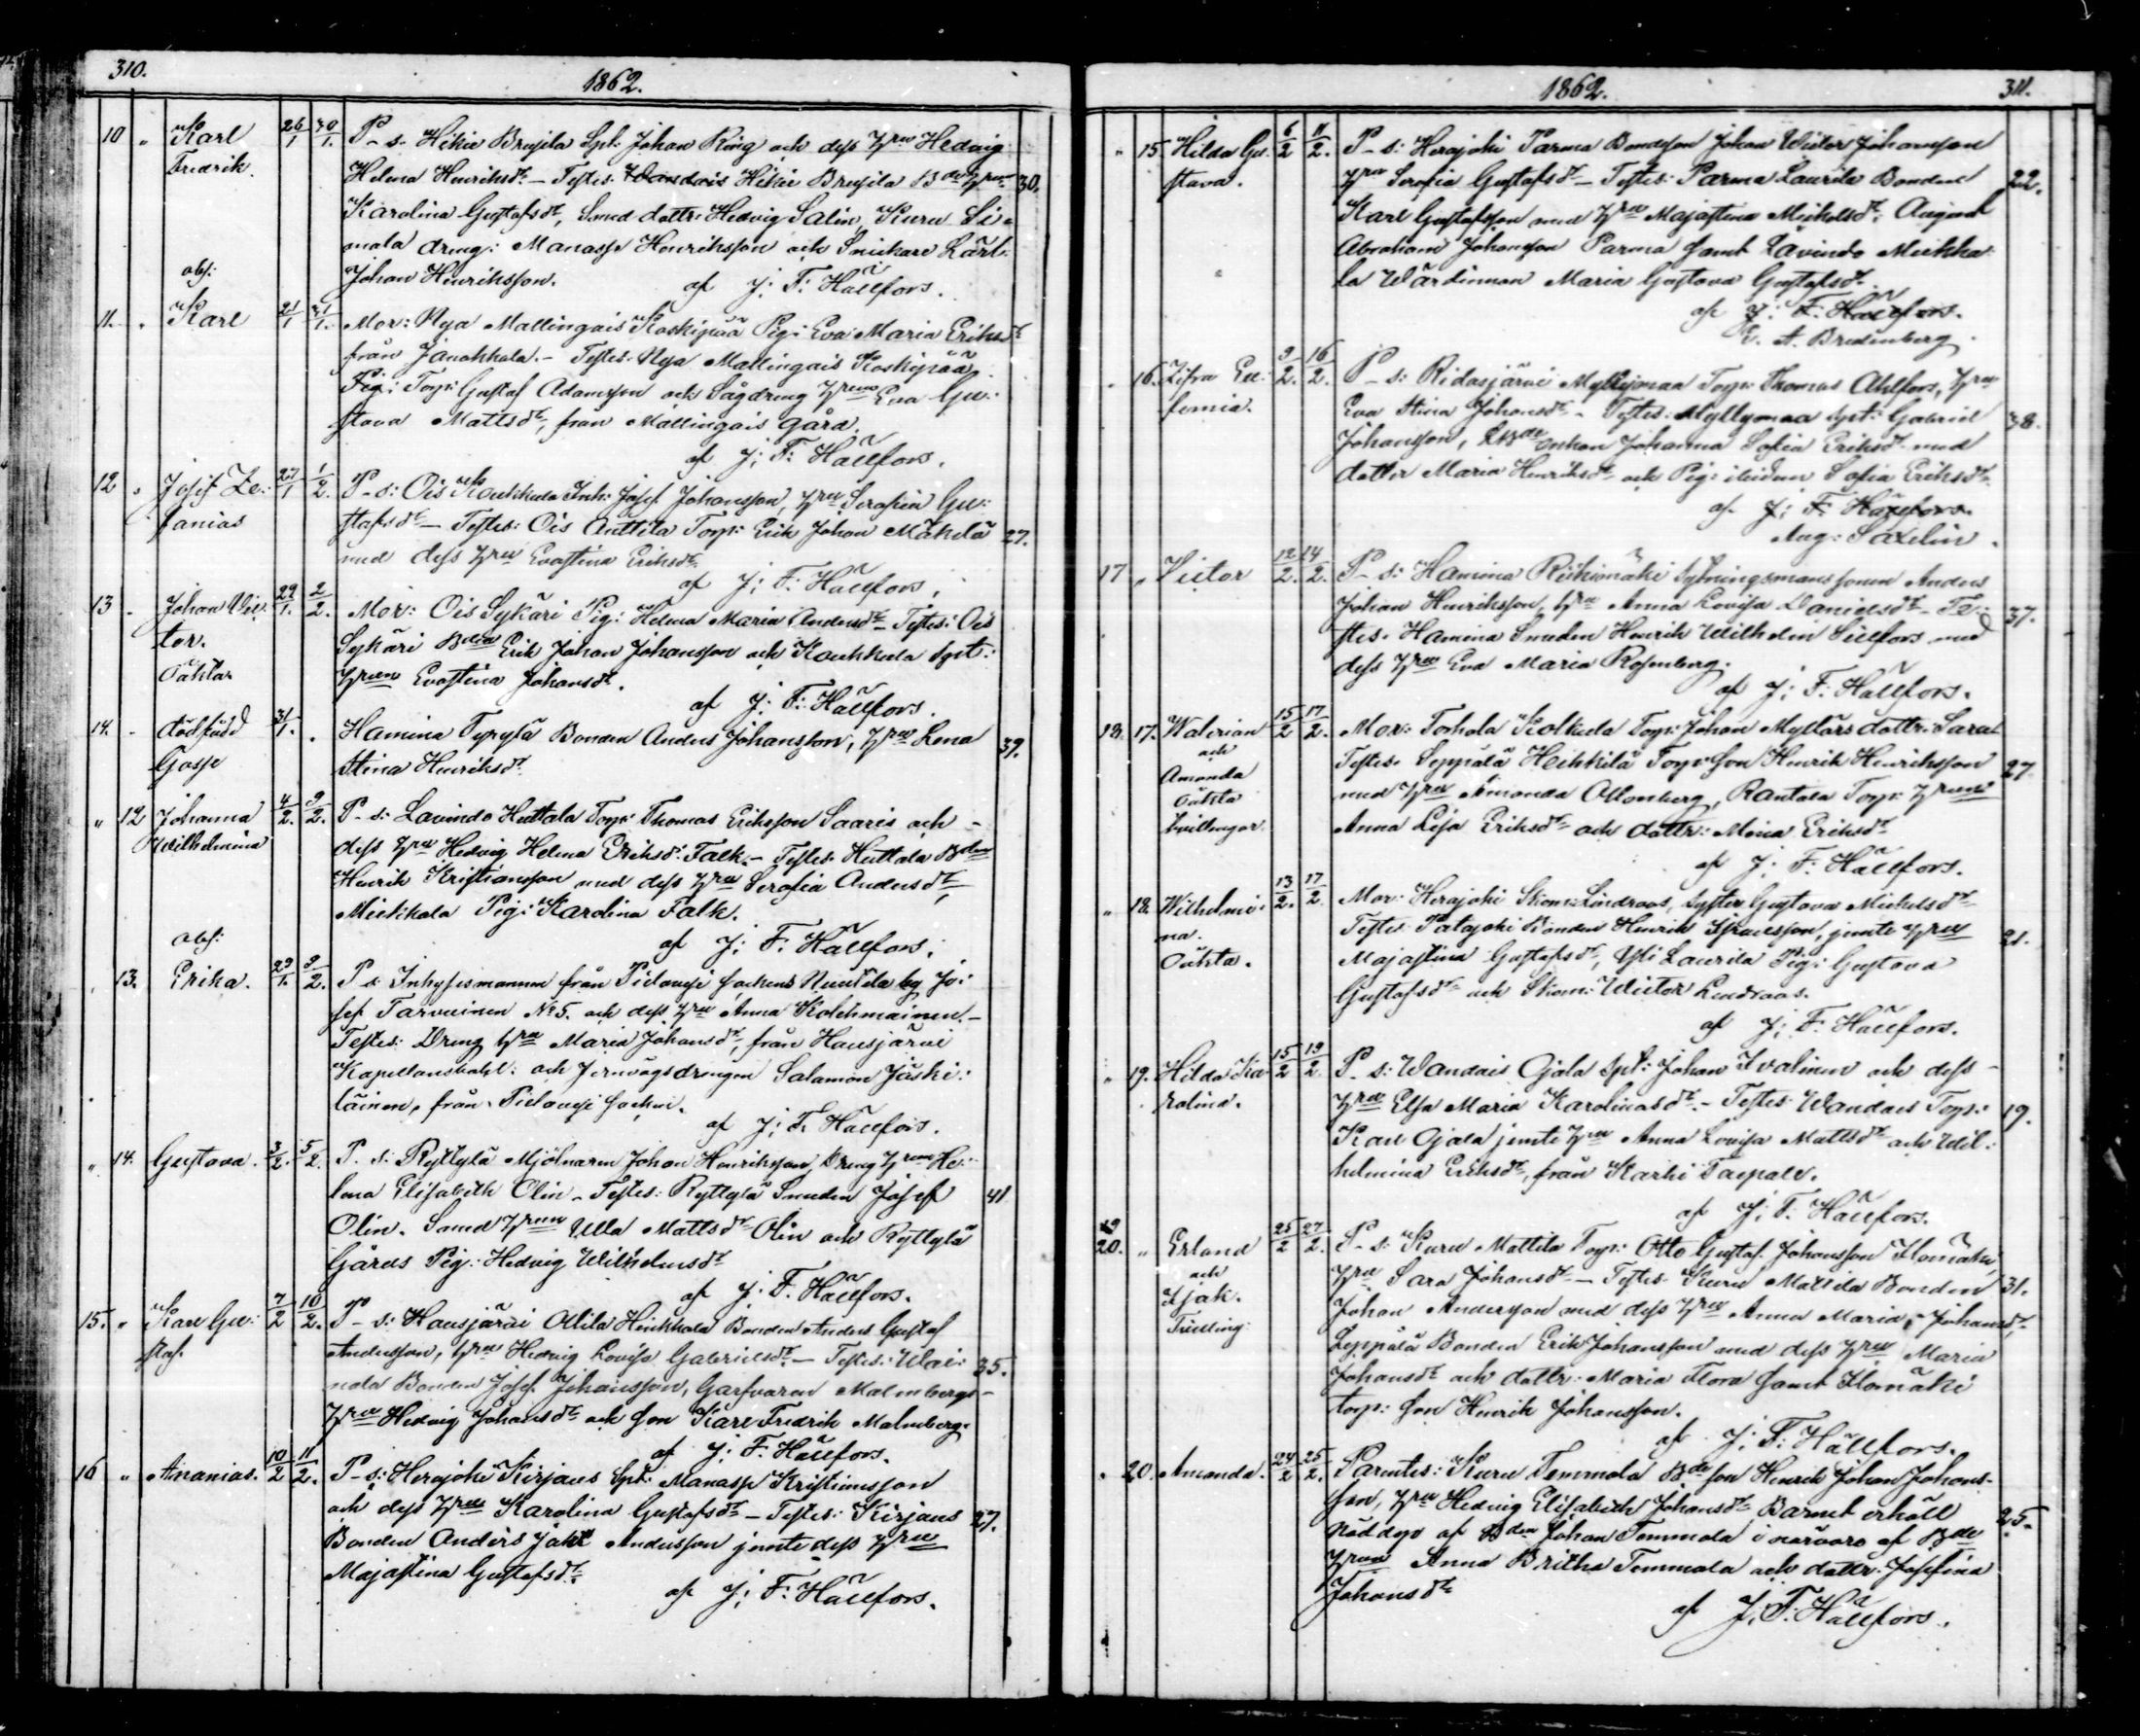 310.
1862.
10 " Karl 26/1 30/1. P-s. Hikiä Brusila Spl: Johan Ring och dess Hru Hedvig
Fredrik. Helena Henriksdr. - Testes. Hikiä Brusila Bde Hru 30.
Karolina Gustafsdr, Smed dottr: Hedvig Salin, Kuru Si-
mola dreng: Manasse Henriksson och Snickare Lärl:
Johan Henriksson. af J: F: Hällfors.
obs:
11. " Karl 21/1 31/1. Mor: Nya Mallingais Koskipää Pig: Eva Maria Eriksdr
från Janakkala. - Testes. Nya Mallingais Koskipää
Torp: Gustaf Adamsson och Sågdreng Hrun Eva Gu-
stava Mattsdr, från Mallingais gård.
af J: F: Hällfors.
12 " Josef Ze- 27/1 1/2. P-s: Ois Koukkula Inh: Josef Johansson, Hru Serafia Gu-
fanias stafsdr - Testes: Ois Anttila Torp: Erik Johan Mäkelä 27.
med dess Hru Evastina Eriksdr.
af J: F: Hällfors.
13 " Johan Vic- 29/1. 2/2. Mor: Ois Sykäri Pig: Helena Maria Andersdr Testes: Ois
tor. Sykäri Bden Erik Johan Johansson och Koukkula Spt:
Oäkta Hrun Evastina Johansdr.
af J: F: Hällfors.
14. " dödfödd 31/1. " Hamina Tyrylä Bonden Anders Johansson, Hru Lena 39.
Gosse Stina Henriksdr
" 12 Johanna 4/2. 9/2. P-s: Lavindo Huttala Torp: Thomas Eriksson Saaris och
Wilhelmina dess Hru Hedvig Helena Eriksdr Falk. - Testes. Huttala Bden
Henrik Kristiansson med dess Hru Serafia Andersdr,
Mieltkala Pig: Karolina Falk.
af J: F: Hällfors.
obs:
" 13. Erika. 29/1. 9/2. P-s. Inhysesmannen från Pielavesi sockens by Jo-
sef Tarvainen No 5. och dess Hru Anna Kolehmainen. -
Testes: Dreng Hru Maria Johansdr, från Hausjärvi
Kapellansbohl: och Jernvägsdrengen Salamon Jäski-
läinen, från Pielavesi socken.
af J: F. Hällfors.
" 14. Gustava. 3/2. 5/2. P. s: Ryttylä Mjölnaren Johan Henriksson, Hrun He-
lena Elisabeth Olin - Testes: Ryttylä Smeden Josef 41
Olin. Smed Hrun Ulla Mattsdr Olin och Ryttylä
Gårds Pig: Hedvig Wilhelmsdr
af J: F. Hällfors.
15. " Karl Gu- 7/2 10/2. P-s: Hausjärvi Ollila Heikkala Bonden Anders Gustaf
staf. Andersson, Hru Hedvig Lovisa Gabrielsdr. - Testes: Wai- 35.
nola Bonden Josef Johansson, Garfvaren Malmbergs-
Hru Hedvig Johansdr och Son Karl Fredrik Malmberg.
af J: F. Hällfors.
16 " Ananias. 10/2 11/2. P-s: Herajoki Kirjaus Spt: Manasse Kristiansson
och dess Hru Karolina Gustafsdr - Testes: Kirjaus 27.
Bonden Anders Jakl Andersson jemte dess Hru
Majastina Gustafsdr.
af J: F. Hällfors.
1862.
311.
" 15 Hilda Gu- 6/2 11/2. P-s: Herajoki Parma Bondeson Johan Wictor Johansson
stava. Hru Serafia Gustafsdr - Testes: Parma Laurila Bonden 22.
Karl Gustafsson med Hru Majastina Mickelsdr. August
Abraham Johansson Parma samt Lavindo Mickka-
la Wärdinnan Maria Gustava Gustafsdr.
af J: F: Hällfors.
E. A. Bredenberg.
" 16. Zifra Eu- 9/2. 16/2. P-s: Ridasjärvi Myllymaa Torp: Thomas Ahlfors, Hru
femia. Eva Stina Johansdr - Testes: Myllymaa Spt: Gabriel 38.
Johansson, Bde enkan Johanna Sofia Eriksdr med
dotter Maria Henriksdr och Pig: ibidem Sofia Eriksdr.
af J: F: Hällfors.
Aug: Saxelin.
17 " Victor 12/2. 14/2. P-s: Hamina Rikimäki Sytningsmanssonen Anders
Johan Henriksson, Hru Anna Lovisa Danielsdr - Te- 37.
stes. Hamina Smeden Henrik Wilhelm Sillfors med
dess Hru Eva Maria Rosenberg.
af J: F: Hällfors.
18. 17. Walerian 15/2 17/2. Mor: Torhola Kolkula Torp: Johan Myllärs dottr: Sara
och Testes. Seppälä Heikkilä Torp: Son Henrik Henriksson 27
Amanda med Hru Amanda Ollonberg, Rantala Torp: Hrun
Oäkta Anna Lisa Eriksdr och dottr: Mina Eriksdr
tvillingar. af J: F. Hällfors.
" 18. Wilhelmi- 13/2. 17/2. Mor: Herajoki Skom: Lindroos, Syster Gustava Michelsdr
na. Testes. Palojoki Bonden Henrik Israelsson, jemte Hru 21.
Oäkta. Majastina Gustafsdr, Yli Laurila Pig: Gustava
Gustafsdr och Skom: Wictor Lindroos.
af J: F. Hällfors.
" 19. Hilda Ka- 15/2 19/2. P-s: Wandais Ojala Spl: Johan Ivalinen och dess
rolina. Hru Elsa Maria Karolinasdr. - Testes Wandais Torp: 19.
Karl Ojala jemte Hru Anna Lovisa Mattsdr och Wil-
helmina Eriksdr, från Karhi Taipale.
af J: F: Hällfors.
19
20. " Erland 25/2 27/2. P-s: Kuru Mattila Torp: Otto Gustaf Johansson Ilomäki,
och Hru Sara Johansdr - Testes Kuru Mattila Bonden 31.
Isak. Johan Andersson med dess Hru Anna Maria Johansdr,
Tvilling: Leppälä Bonden Erik Johansson med dess Hru Maria
Johansdr och dottr: Maria Flora samt Ilomäki
torp: Son Henrik Johansson.
af J: F: Hällfors.
" 20. Amanda. 24/2 25/2. Parentes: Kuru Temmola Bde son Henrik Johan Johans-
son, Hru Hedvig Elisabeth Johansdr. Barnet erhöll 25.
Nöddop af Bden Johan Temmola i närvaro af Bde
Hrun Anna Britha Temmola och dottr. Josefina
Johansdr
af J: F. Hällfors.